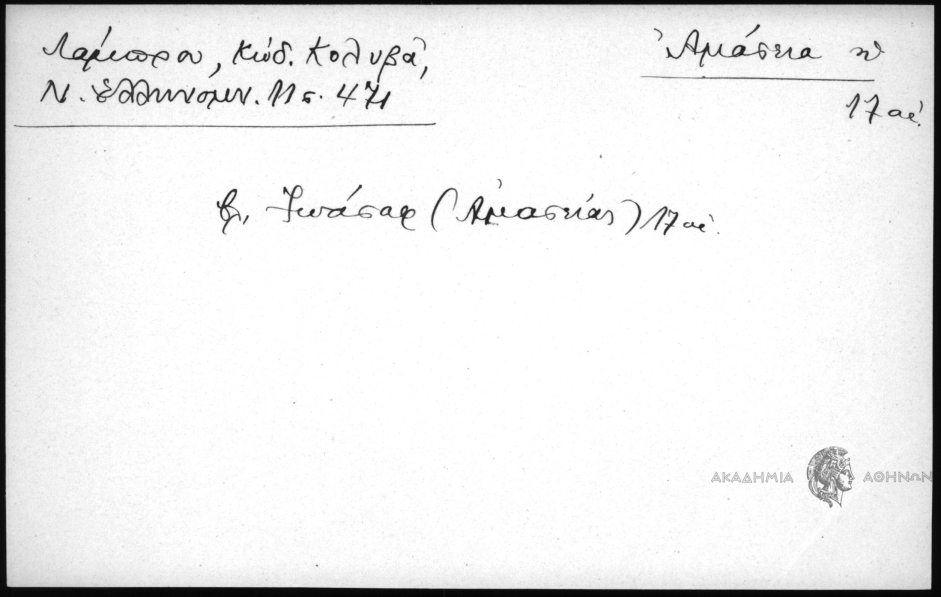 Λάμπρου, Κώδ. Κολυβᾶ,
Ν. Ἑλληνομν. 11 σ. 471
Ἀμάσεια ἡ
17 αἰ.
Ἰωάσαφ (Ἀμασείας) 17 αἰ.
ΑΚΑΔΗΜΙΑ ΑΘΗΝΩΝ